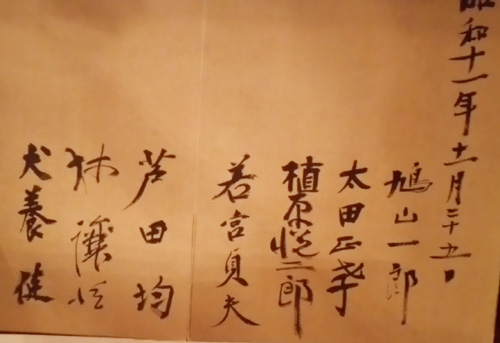 昭和十一年十一月二十五日
鳩山一郎
太田正孝
植原悦二郎
若宮貞夫
芦田均
林讓治
犬養健